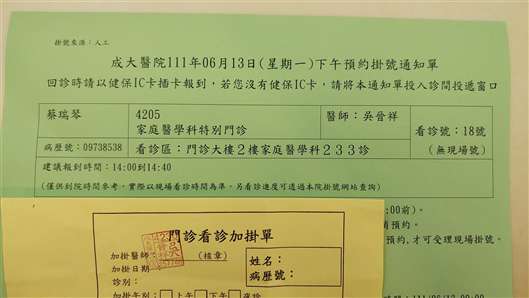 掛號來源：人工
成大醫院111年06月13日(星期一)下午預約掛號通知單
回診時請以健保IC卡插卡報到，若您沒有健保IC卡，請將本通知單投入診間投遞窗口
蔡瑞琴 4205 醫師：吳晉祥 看診號：18號
家庭醫學科特別門診 (無現場號)
病歷號：09738538 看診區：門診大樓2樓家庭醫學科233診
建議報到時間：14:00到14:40
(僅供到院時間參考，實際以現場看診時間為準，另看診進度可透過本院掛號網站查詢)
:00前)。
預約。
預約，才可受理現場掛號。
門診看診加掛單
加掛醫師： (核章) 姓名：
加掛日期 病歷號：
診別：
加掛午別：□上午□下午□夜診